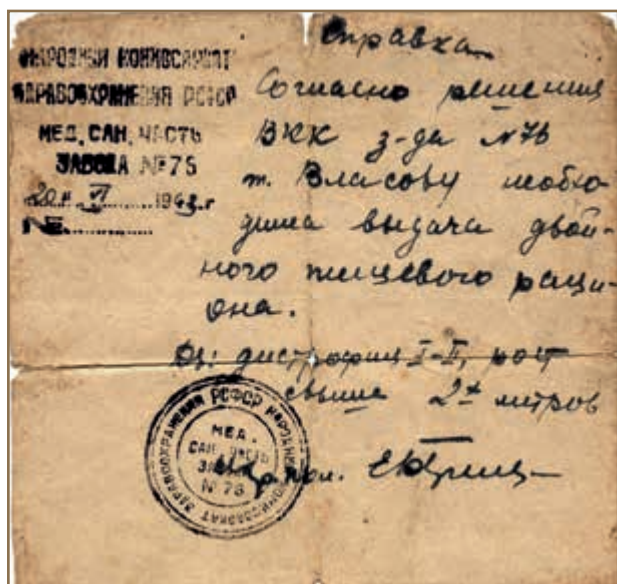 НАРОДНЫЙ КОМИССАРИАТ
ЗДРАВООХРАНЕНИЯ РСФСР
МЕД. САН. ЧАСТЬ
ЗАВОДА № 76
20 " VI 1943 г
№
Справка
Согласно решения
ВКК з-да № 76
т. Власову необхо-
дима выдача двой-
ного пищевого раци-
она.
Dz: дистрофия I-II, рост
свыше 2х метров
НАРОДНЫЙ КОМИССАРИАТ ЗДРАВООХРАНЕНИЯ РСФСР
МЕД.
САН. ЧАСТЬ
ЗАВОДА
№ 76